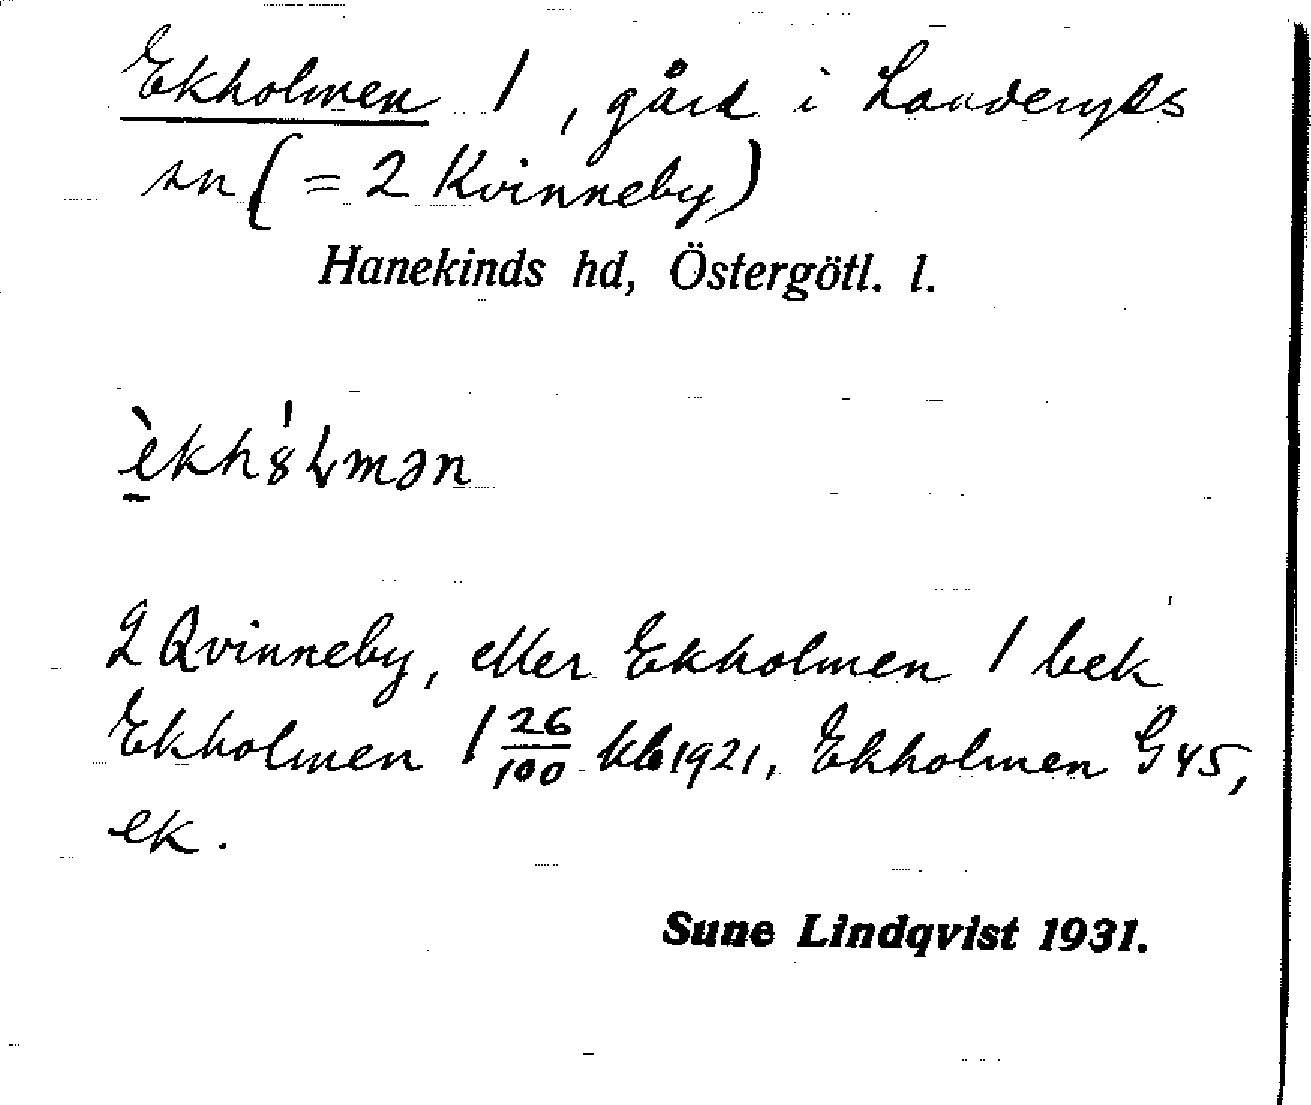 Ekholmen 1, gård i Landeryds
sn (= 2 Kvinneby)
Hanekinds hd, Östergötl. l.
2 Qvinneby, eller Ekholmen 1 bek
Ekholmen 1 26/100 kb 1921, Ekholmen G 45,
ek.
Sune Lindqvist 1931.